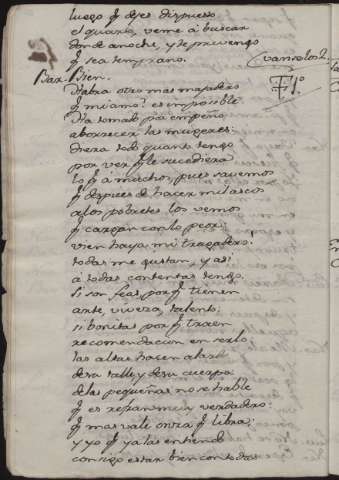 luego q̃ dejes dispuesto
el quarto, veme á buscar
donde anoche, y te prevengo
q̃ sea temprano. (vanse los 2.
Bar. Bien.
Habrá otro mas majadero
q̃ mi amo? es imposible.
Ha tomado por empeño
aborrecer las mugeres:
diera todo quanto tengo
por ver q̃ le sucediera
lo q̃ á muchos, pues savemos
q̃ despues de hacer mil ascos
a los pobretes los vemos
q̃ cargan con lo peor:
vien haya mi tragadero.
todas me gustan, y asi
á todas contentas tengo.
si son feas, porq̃ tienen
arte, viveza, talento:
si bonitas porq̃ traen
recomendacion en serlo
las altas hacen alarde
de su talle, y de su cuerpo:
de las pequeñas no se hable
q̃ es refran muy verdadero:
q̃ mas vale onza q̃ libra;
y yo q̃ ya las entiendo
consigo estar bien con todas